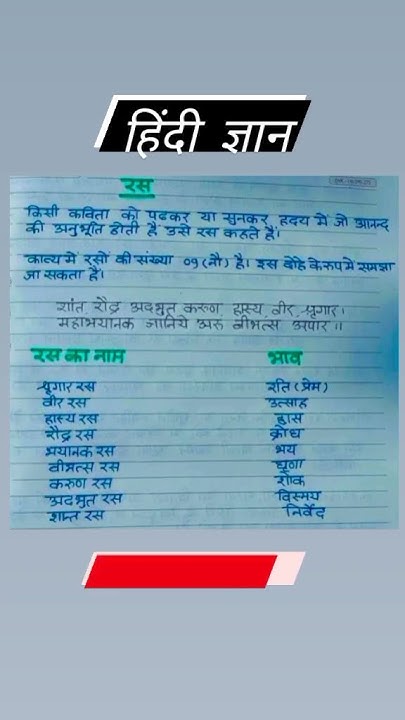 हिंदी ज्ञान
रस
किसी कविता को पढकर या सुनकर हृदय में जो आनन्द
की अनुभूति होती है उसे रस कहते हैं।
काव्य में रसों की संख्या 09 (नौ) है। इस दोहे के रूप में समझा
जा सकता है।
शांत रौद्र अदभुत करुण, हास्य, वीर, श्रृंगार।
महाभयानक जानिये अरु वीभत्स अपार॥
रस का नाम भाव
श्रृगार रस रति (प्रेम)
वीर रस उत्साह
हास्य रस हास
रौद्र रस क्रोध
भयानक रस भय
वीभत्स रस घृणा
करुण रस शोक
अदभुत रस विस्मय
शान्त रस निर्वेद